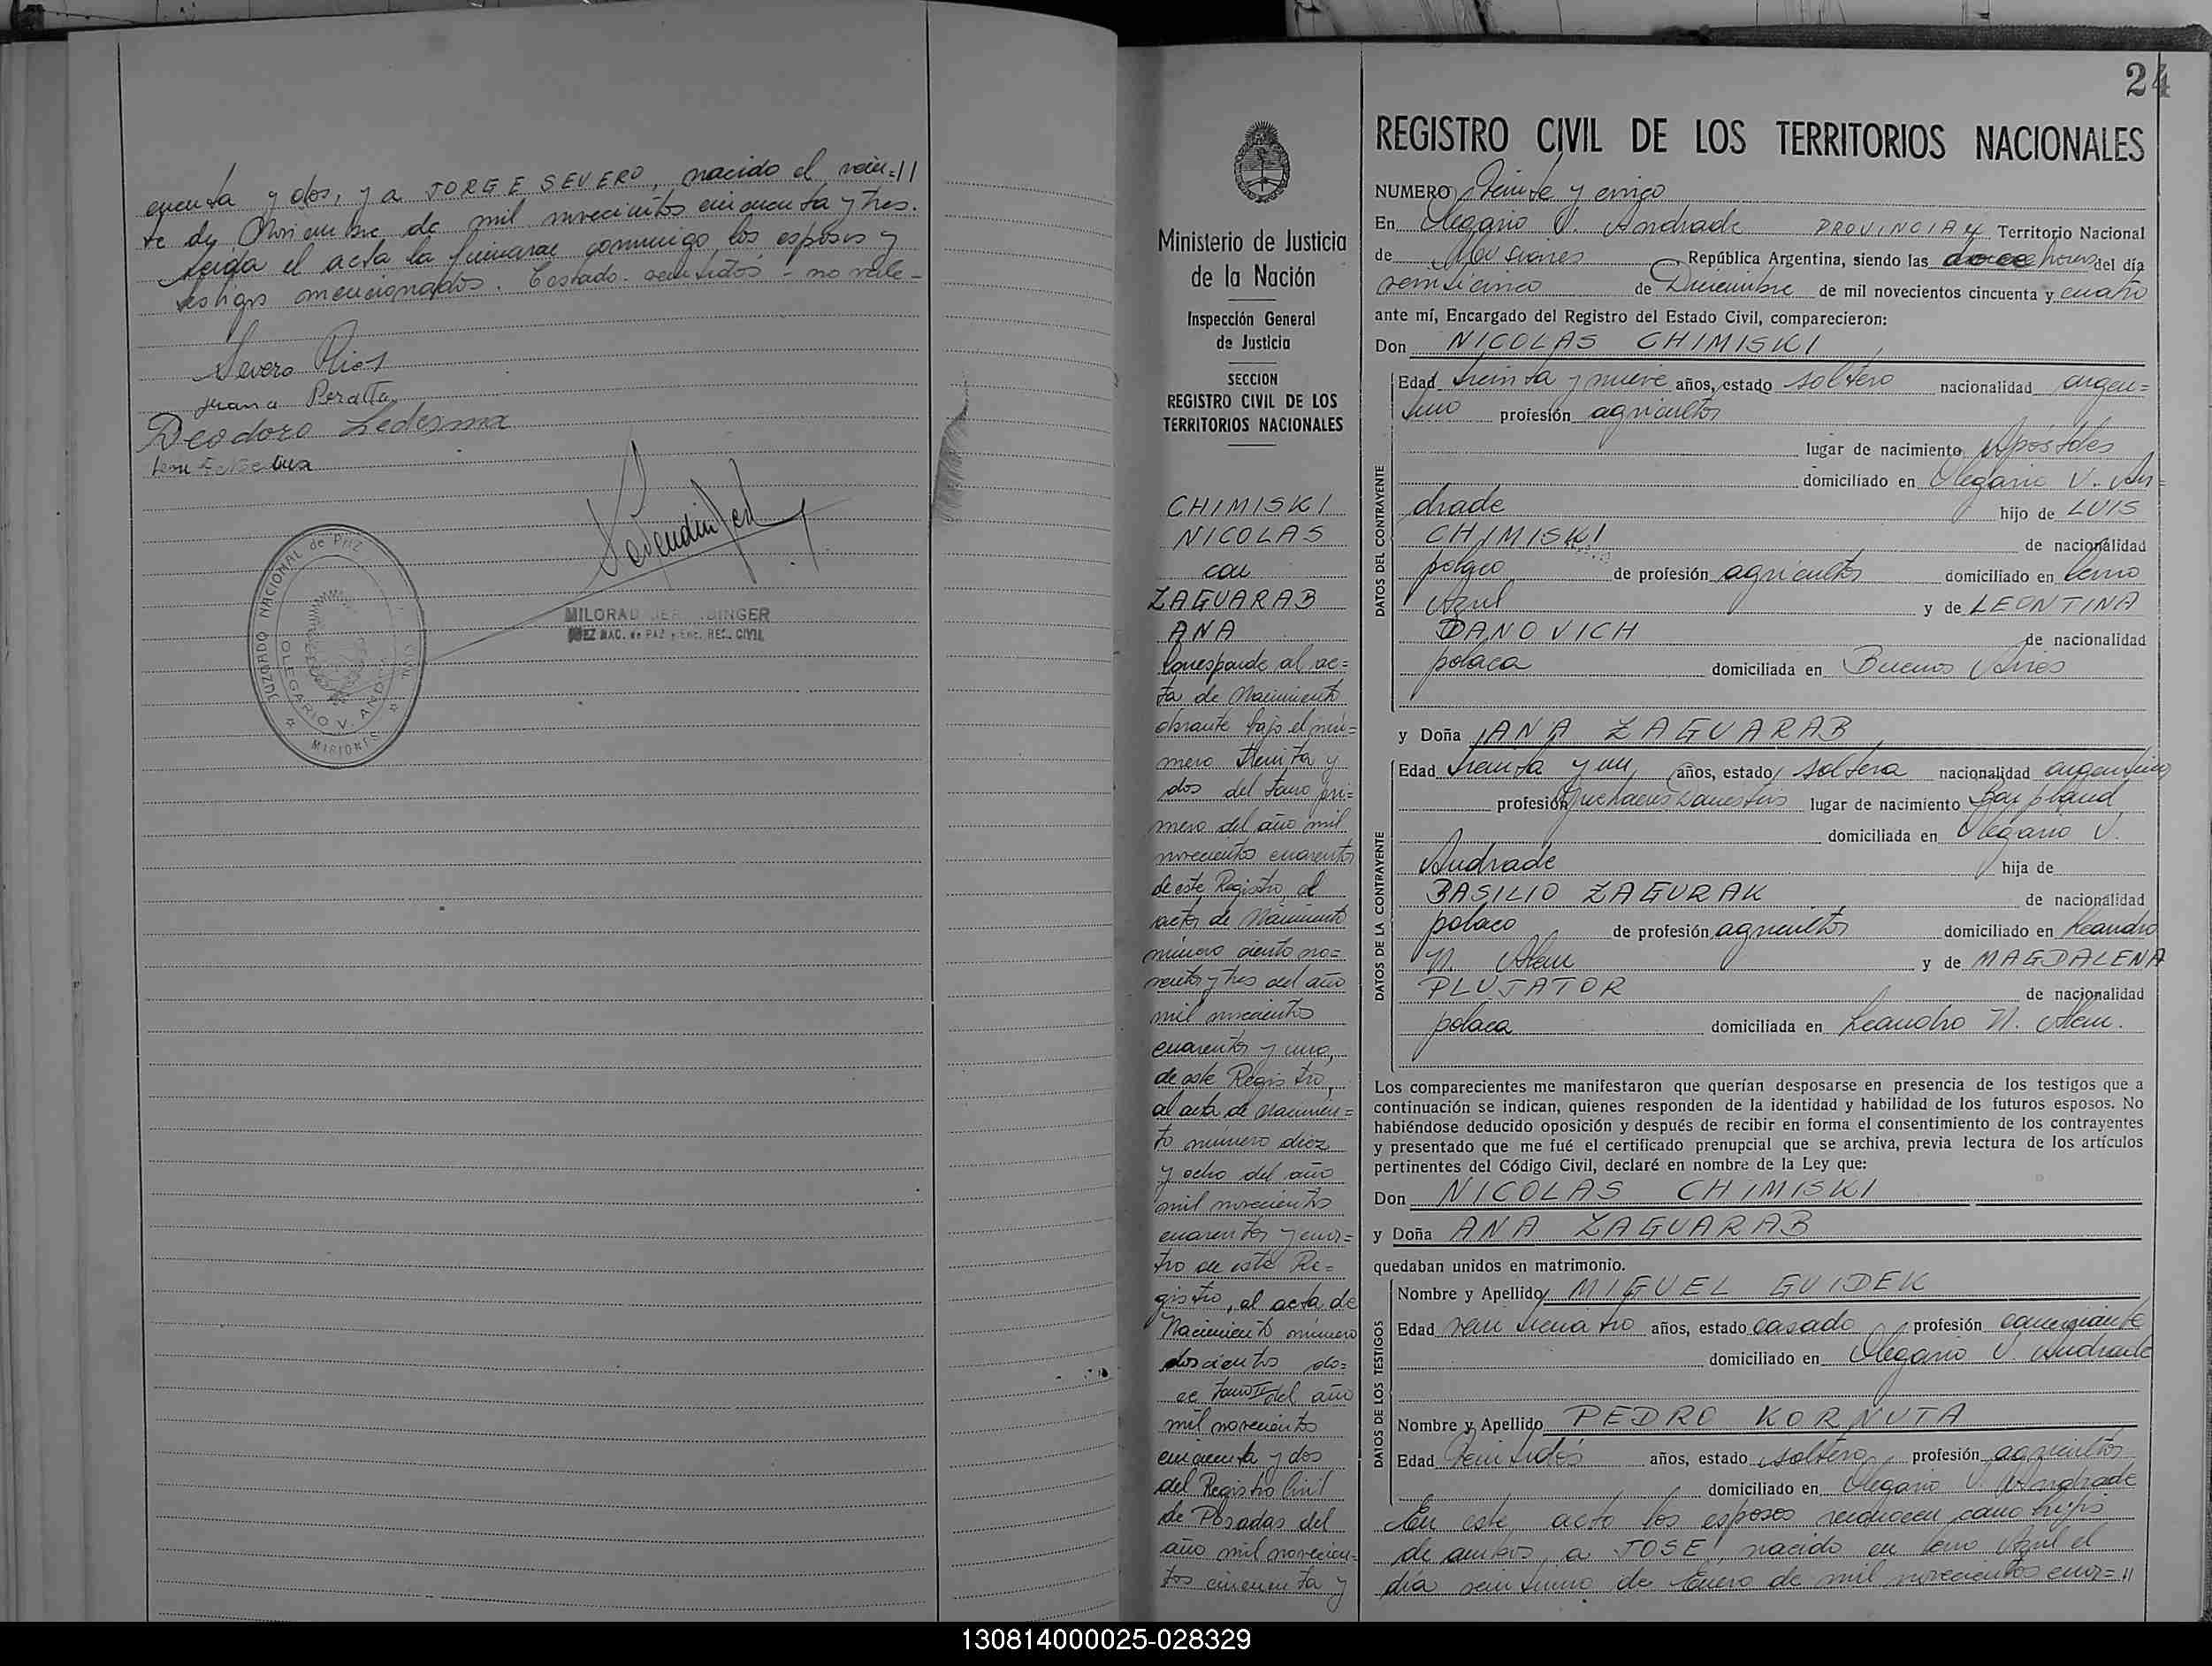 cuenta y dos, y a JORGE SEVERO, nacido el vein=//
te de Noviembre de mil novecientos cincuenta y tres.
Leida el acta la firmaron conmigo los esposos y
testigos mencionados. Testado - veintidós - no vale -
Severo Rios
Juana Peralta
Deodoro Ledesma
JUZGADO NACIONAL de PAZ
OLEGARIO V. AND
MISIONES
MILORAD
JUEZ NAC. de PAZ y Enc. REG. CIVIL
24
Ministerio de Justicia
de la Nación
Inspección General
de Justicia
SECCION
REGISTRO CIVIL DE LOS
TERRITORIOS NACIONALES
CHIMISKI
NICOLAS
con
ZAGUARAB
ANA
Corresponde al ac=
ta de Nacimiento
obrante bajo el nú=
mero treinta y
dos del tomo pri=
mero del año mil
novecientos cuarenta
de este Registro, al
acta de Nacimiento
número ciento no=
venta y tres del año
mil novecientos
cuarenta y uno,
de este Registro,
al acta de Nacimien=
to número diez
y ocho del año
mil novecientos
cuarenta y cua=
tro de este Re=
gistro, al acta de
Nacimiento número
doscientos do=
ce tomo del año
mil novecientos
cincuenta y dos
del Registro Civil
de Posadas del
año mil novecien=
tos cincuenta y
REGISTRO CIVIL DE LOS TERRITORIOS NACIONALES
NUMERO Veinte y cinco
En Olegario V. Andrade PROVINCIA Territorio Nacional
de Misiones República Argentina, siendo las doce horas del día
veinticinco de Diciembre de mil novecientos cincuenta y cuatro
ante mí, Encargado del Registro del Estado Civil, comparecieron:
Don NICOLAS CHIMISKI
DATOS DEL CONTRAYENTE
Edad treinta y nueve años, estado soltero nacionalidad argen=
tino profesión agricultor
lugar de nacimiento Apóstoles
domiciliado en Olegario V. An=
drade hijo de LUIS
CHIMISKI de nacionalidad
polaco de profesión agricultor domiciliado en Cerro
Azul y de LEONTINA
DANOVICH de nacionalidad
polaca domiciliada en Buenos Aires
y Doña ANA ZAGUARAB
DATOS DE LA CONTRAYENTE
Edad treinta y un años, estado soltera nacionalidad argentina
profesión quehaceres domésticos lugar de nacimiento
domiciliada en Olegario V.
Andrade hija de
BASILIO ZAGURAK de nacionalidad
polaco de profesión agricultor domiciliado en Leandro
N. Alem y de MAGDALENA
PLUJATOR de nacionalidad
polaca domiciliada en Leandro N. Alem.
Los comparecientes me manifestaron que querían desposarse en presencia de los testigos que a
continuación se indican, quienes responden de la identidad y habilidad de los futuros esposos. No
habiéndose deducido oposición y después de recibir en forma el consentimiento de los contrayentes
y presentado que me fué el certificado prenupcial que se archiva, previa lectura de los artículos
pertinentes del Código Civil, declaré en nombre de la Ley que:
Don NICOLAS CHIMISKI
y Doña ANA ZAGUARAB
quedaban unidos en matrimonio.
DATOS DE LOS TESTIGOS
Nombre y Apellido MIGUEL GUIDEK
Edad veinticuatro años, estado casado profesión comerciante
domiciliado en Olegario V. Andrade
Nombre y Apellido PEDRO KORNUTA
Edad Veintidós años, estado soltero profesión agricultor
domiciliado en Olegario V. Andrade
En este acto los esposos reconocen como hijos
de ambos, a JOSE, nacido en Cerro Azul el
día veintiuno de Enero de mil novecientos cua=//
130814000025-028329